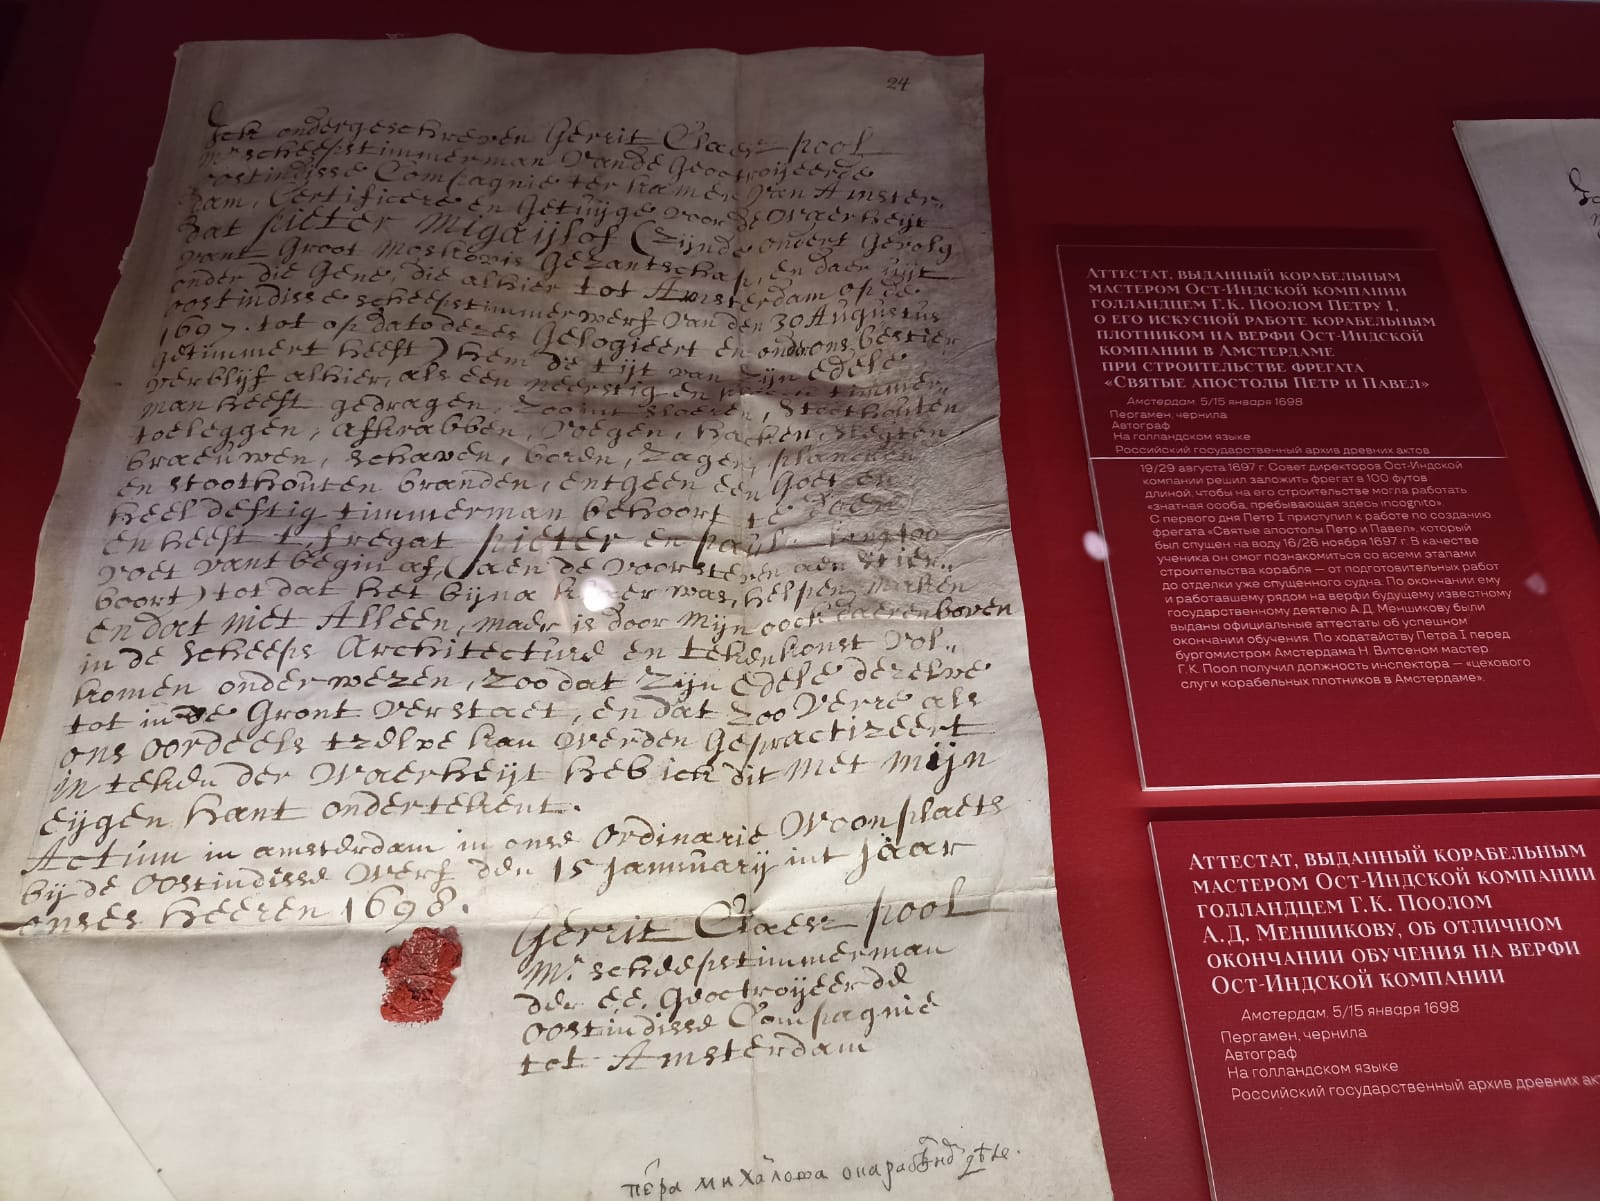 24
Ick ondergeschreven Gerrit Claesz pool
Mr scheepstimmerman vande Geoctroijeerde
oostindisse Compagnie ter kamer van Amster-
dam, Certificere en Getuijge voor de Waerheijt
dat pieter Migaijlof (zijnde ondert gevolg
vant Groot Moskovis Gezantschap, en daer uijt
onder die Gene, die alhier tot Amsterdam op de
oostindisse scheepstimmerwerf van den 30 Augustus
1697. tot op dato deses Gelogieert en onder ons bestier
getimmert heeft) hem de tijt van zijn Edele
verblijf alhier, als een neerstig en timmer-
man heeft gedragen, Zoo int vloeren, stoothouten
toeleggen, afkrabben, voegen, hacken,
braeuwen, schaven, boren, Zagen, plancken
en stoothouten branden, entgeen een Goet en
heel deftig timmerman behoort te doen
en heeft t, fregat pieter en paul,
voet vant begin af, (aen de voorsteven aen stier-
boort) tot dat het bijna klaer was, helpen maken
en dat niet Alleen, maer is door Mijn oock daerenboven
in de scheeps Architecture en tekenkonst vol-
komen onderwezen, Zoo dat Zijn Edele dezelve
tot in de Gront verstaet, en dat zoo verre als
ons oordeels tzelve kan werden Gepractizeert
in teken der Waerheijt heb ick dit met mijn
eijgen hant ondertekent.
Actum in amsterdam in onse Ordinarie Woonplaets
bij de Oostindisse Werf den 15 Januarij int Jaar
onses heeren 1698.
Gerrit Claesz pool
Mr. scheepstimmerman
der ee. Geoctroijeerde
oostindisse Compagnie
tot Amsterdam
михалова
Аттестат, выданный корабельным
мастером Ост-Индской компании
голландцем Г.К. Поолом Петру I,
о его искусной работе корабельным
плотником на верфи Ост-Индской
компании в Амстердаме
при строительстве фрегата
«Святые апостолы Петр и Павел»
Амстердам. 5/15 января 1698
Пергамен, чернила
Автограф
На голландском языке
Российский государственный архив древних актов
19/29 августа 1697 г. Совет директоров Ост-Индской
компании решил заложить фрегат в 100 футов
длиной, чтобы на его строительстве могла работать
«знатная особа, пребывающая здесь incognito».
С первого дня Петр I приступил к работе по созданию
фрегата «Святые апостолы Петр и Павел», который
был спущен на воду 16/26 ноября 1697 г. В качестве
ученика он смог познакомиться со всеми этапами
строительства корабля — от подготовительных работ
до отделки уже спущенного судна. По окончании ему
и работавшему рядом на верфи будущему известному
государственному деятелю А.Д. Меншикову были
выданы официальные аттестаты об успешном
окончании обучения. По ходатайству Петра I перед
бургомистром Амстердама Н. Витсеном мастер
Г.К. Поол получил должность инспектора — «цехового
слуги корабельных плотников в Амстердаме».
Аттестат, выданный корабельным
мастером Ост-Индской компании
голландцем Г.К. Поолом
А.Д. Меншикову, об отличном
окончании обучения на верфи
Ост-Индской компании
Амстердам. 5/15 января 1698
Пергамен, чернила
Автограф
На голландском языке
Российский государственный архив древних ак